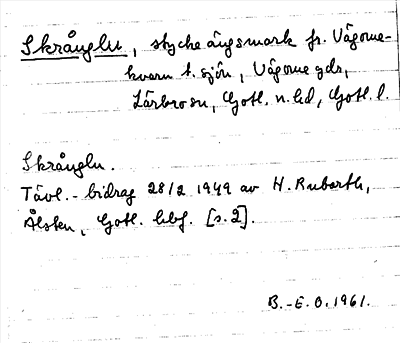 Skrånglu, stycke ängsmark fr. Vägome-
kvarn t. sjön, Vägome gds,
Lärbro sn, Gotl. n. hd, Gotl. l.
Skrånglu.
Tävl.-bidrag 28/2 1949 av H. Rubarth,
Gotl. [s. 2].
B.-E. O. 1961.